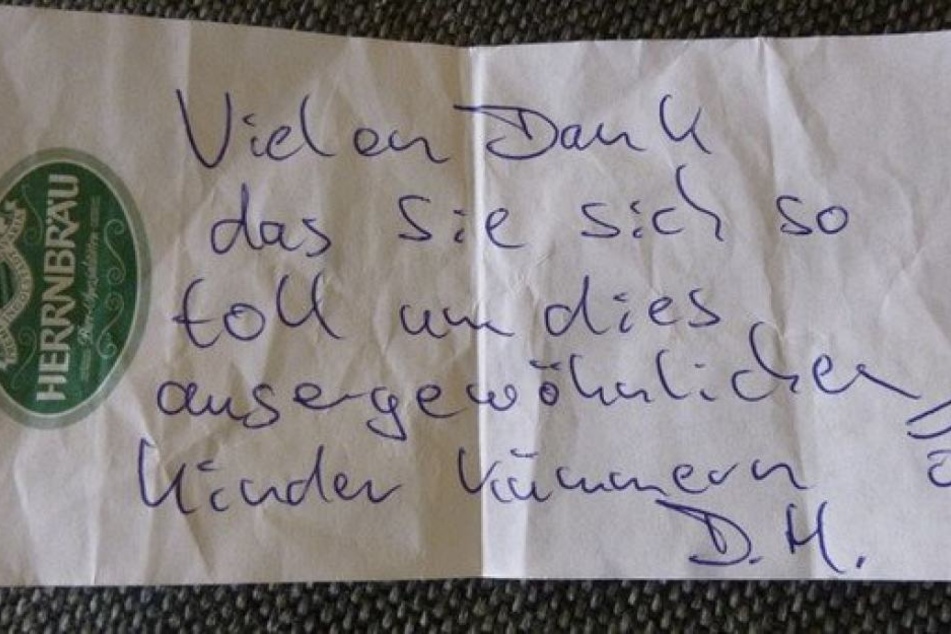 HERRNBRÄU
Vielen Dank
das Sie sich so
toll um dies
ausergewöhnlichen
Kinder kümmern
D.H.